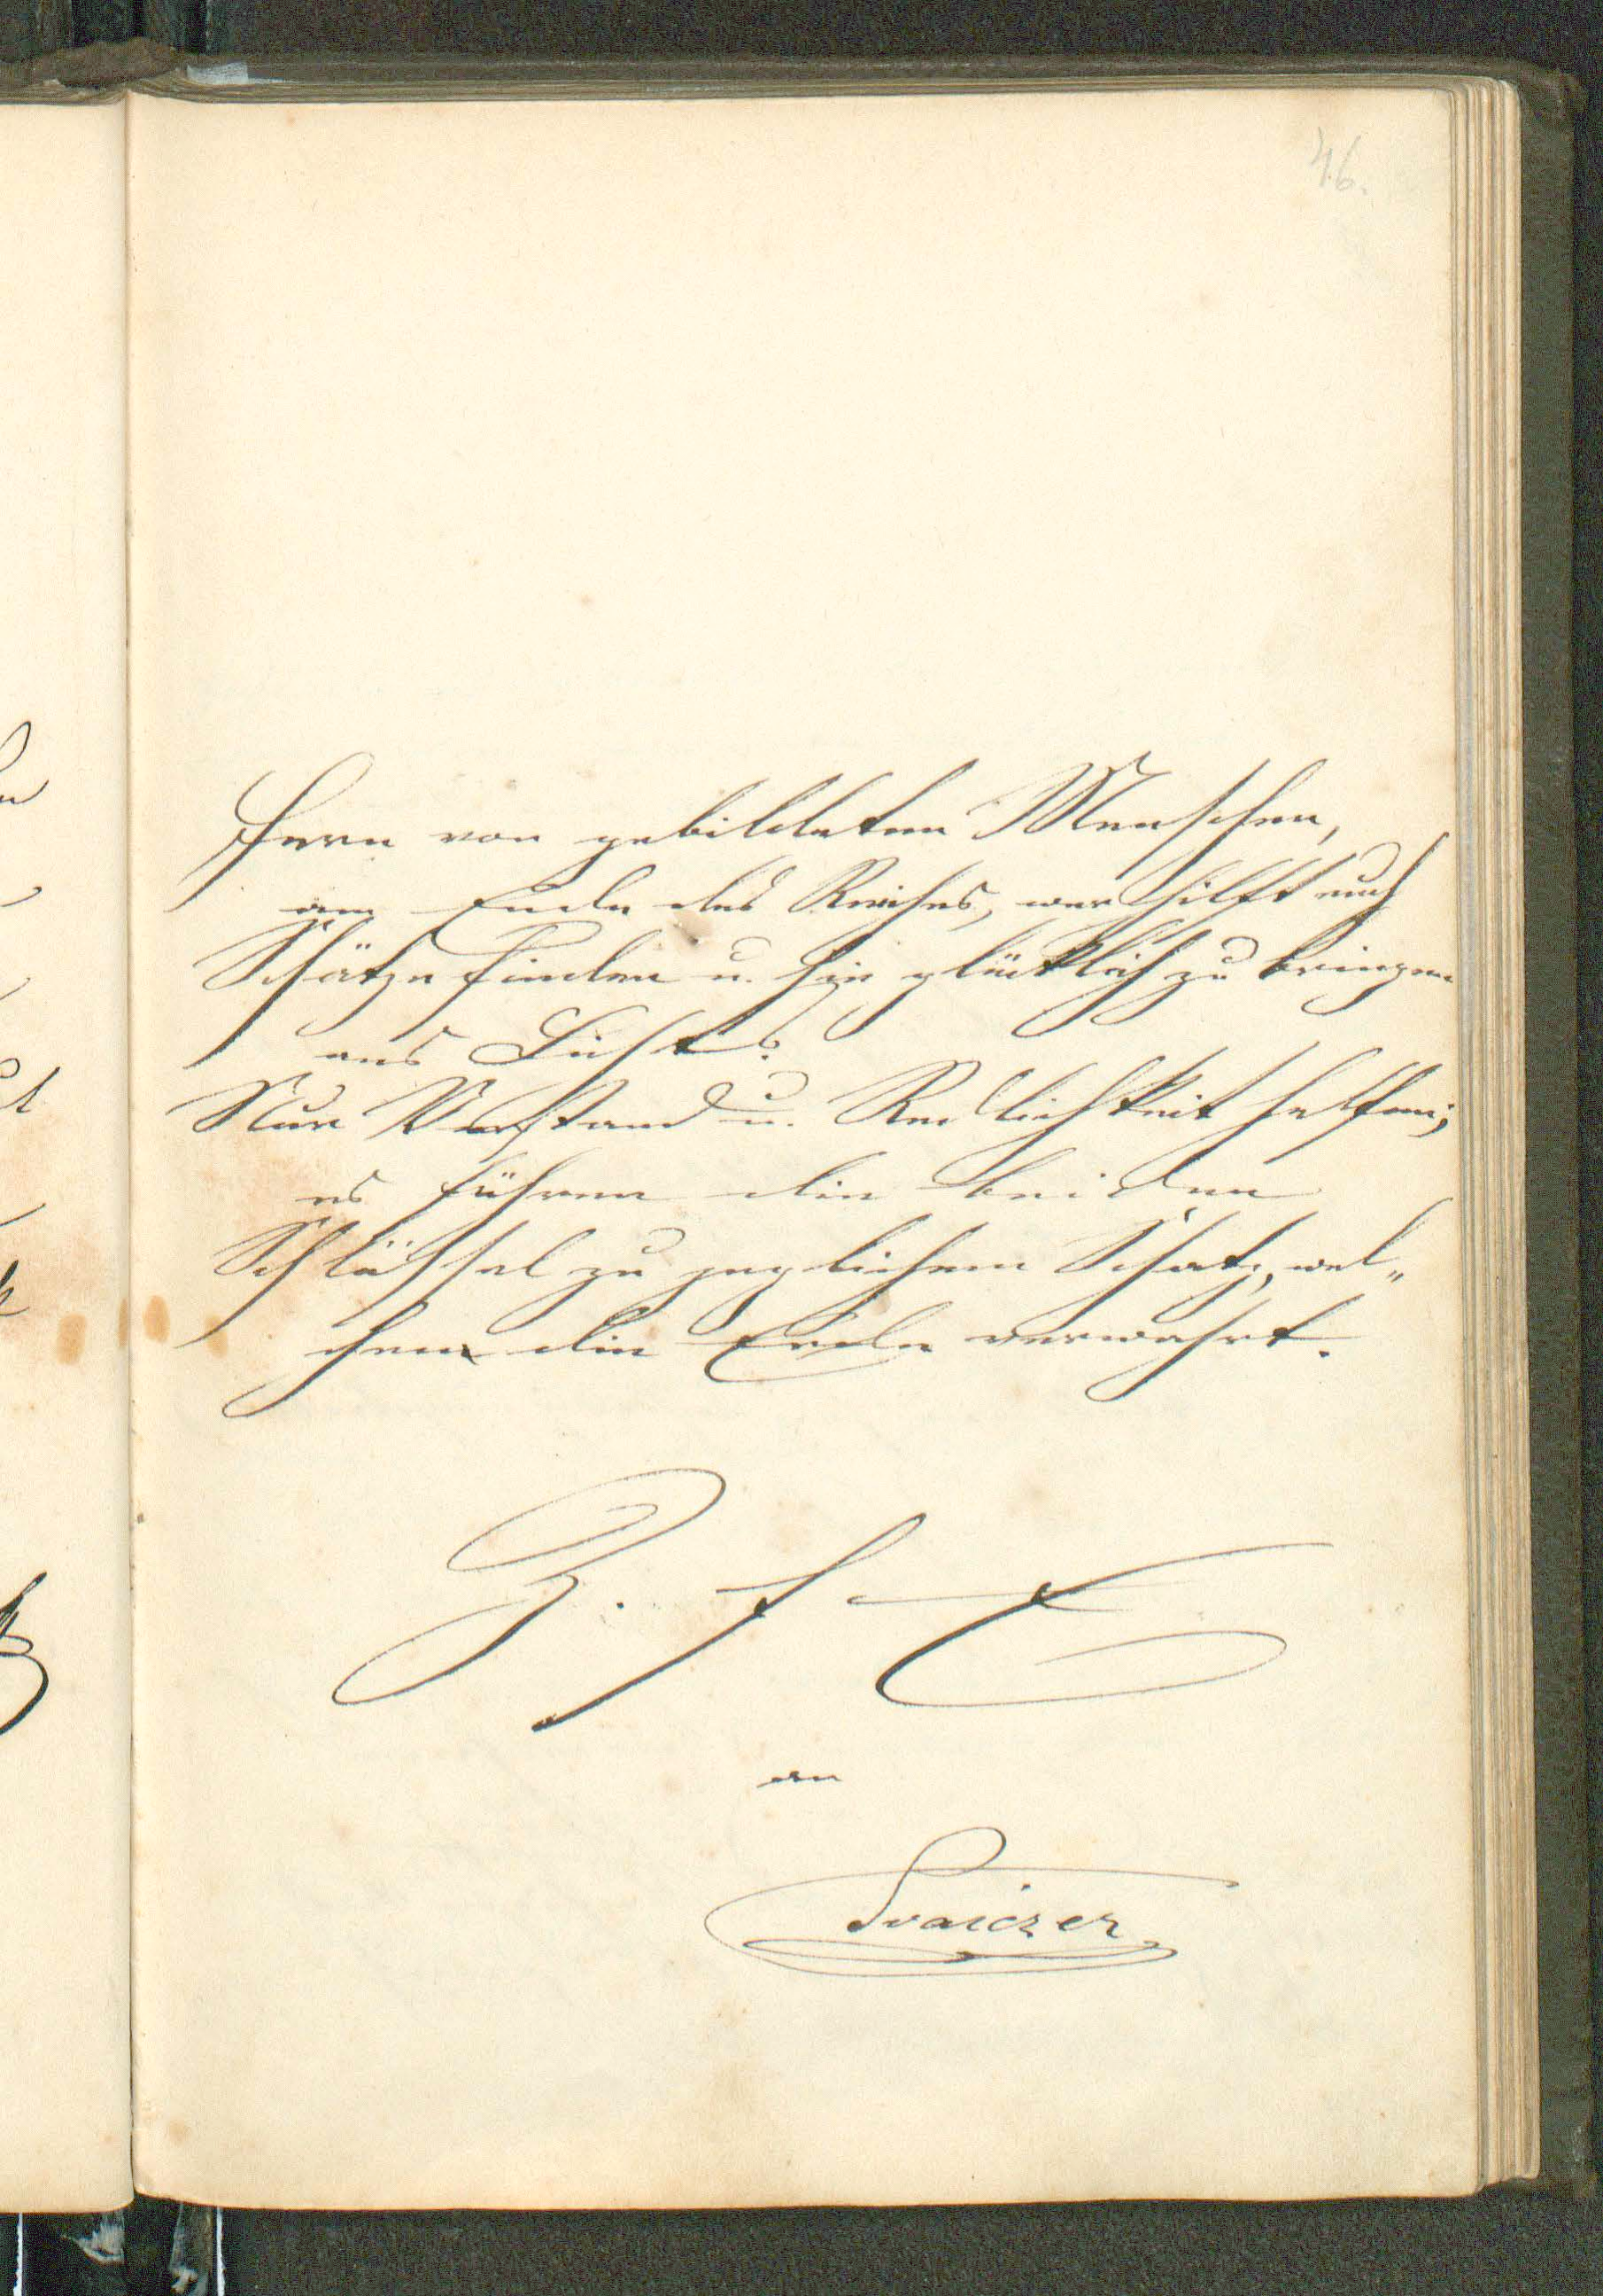 46.
Fern von gebildeten Menschen,
am Ende des Reiches, wer hilft euch
Schätze finden u. sie glücklich zu bringen
ans Licht?
Nur Verstand u. Redlichkeit helfen;
es führen die beiden
Schlüssel zu jeglichem Schatz, wel„
chen die Erde verwahrt.
an
Svaiczer